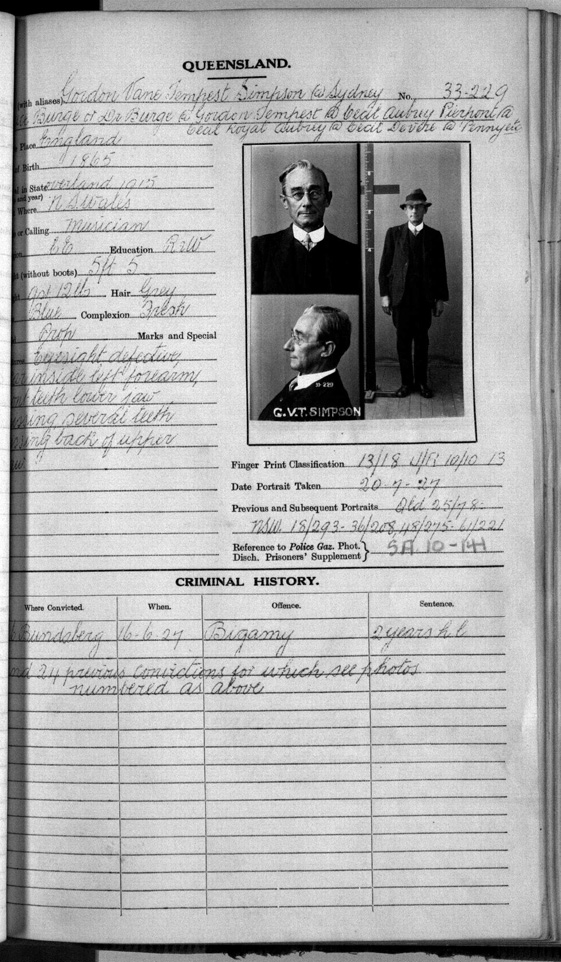 QUEENSLAND.
(with aliases) Gordon Vane Tempest Simpson @ Sydney No. 33-229
Burge or De Burge @ Gordon Tempest @ Cecil Aubrey Pierpont @
Cecil Royal Aubrey @ Cecil De Vere @ Penny etc
Place England
of Birth 1865
in State overland 1915
and year)
Where. N.S. Wales
or Calling. Musician
CE Education R&W
(without boots) 5ft 5
9st 12lb Hair Grey
Blue Complexion Fresh
Prop Marks and Special
Eyesight defective,
inside left forearm,
teeth lower jaw
missing several teeth
back of upper
G.V.T. SIMPSON
Finger Print Classification 13/18 U/R 10/10 13
Date Portrait Taken 20-7-27
Previous and Subsequent Portraits Qld 25/78-
NSW. 18/293-36/208, 48/275-61/221
Reference to Police Gaz. Phot.
Disch. Prisoners' Supplement} SA 10-14H
CRIMINAL HISTORY.
Where Convicted. When. Offence. Sentence.
Bundsberg 16-6-27 Bigamy 2 years h l
24 previous convictions for which see photos
numbered as above